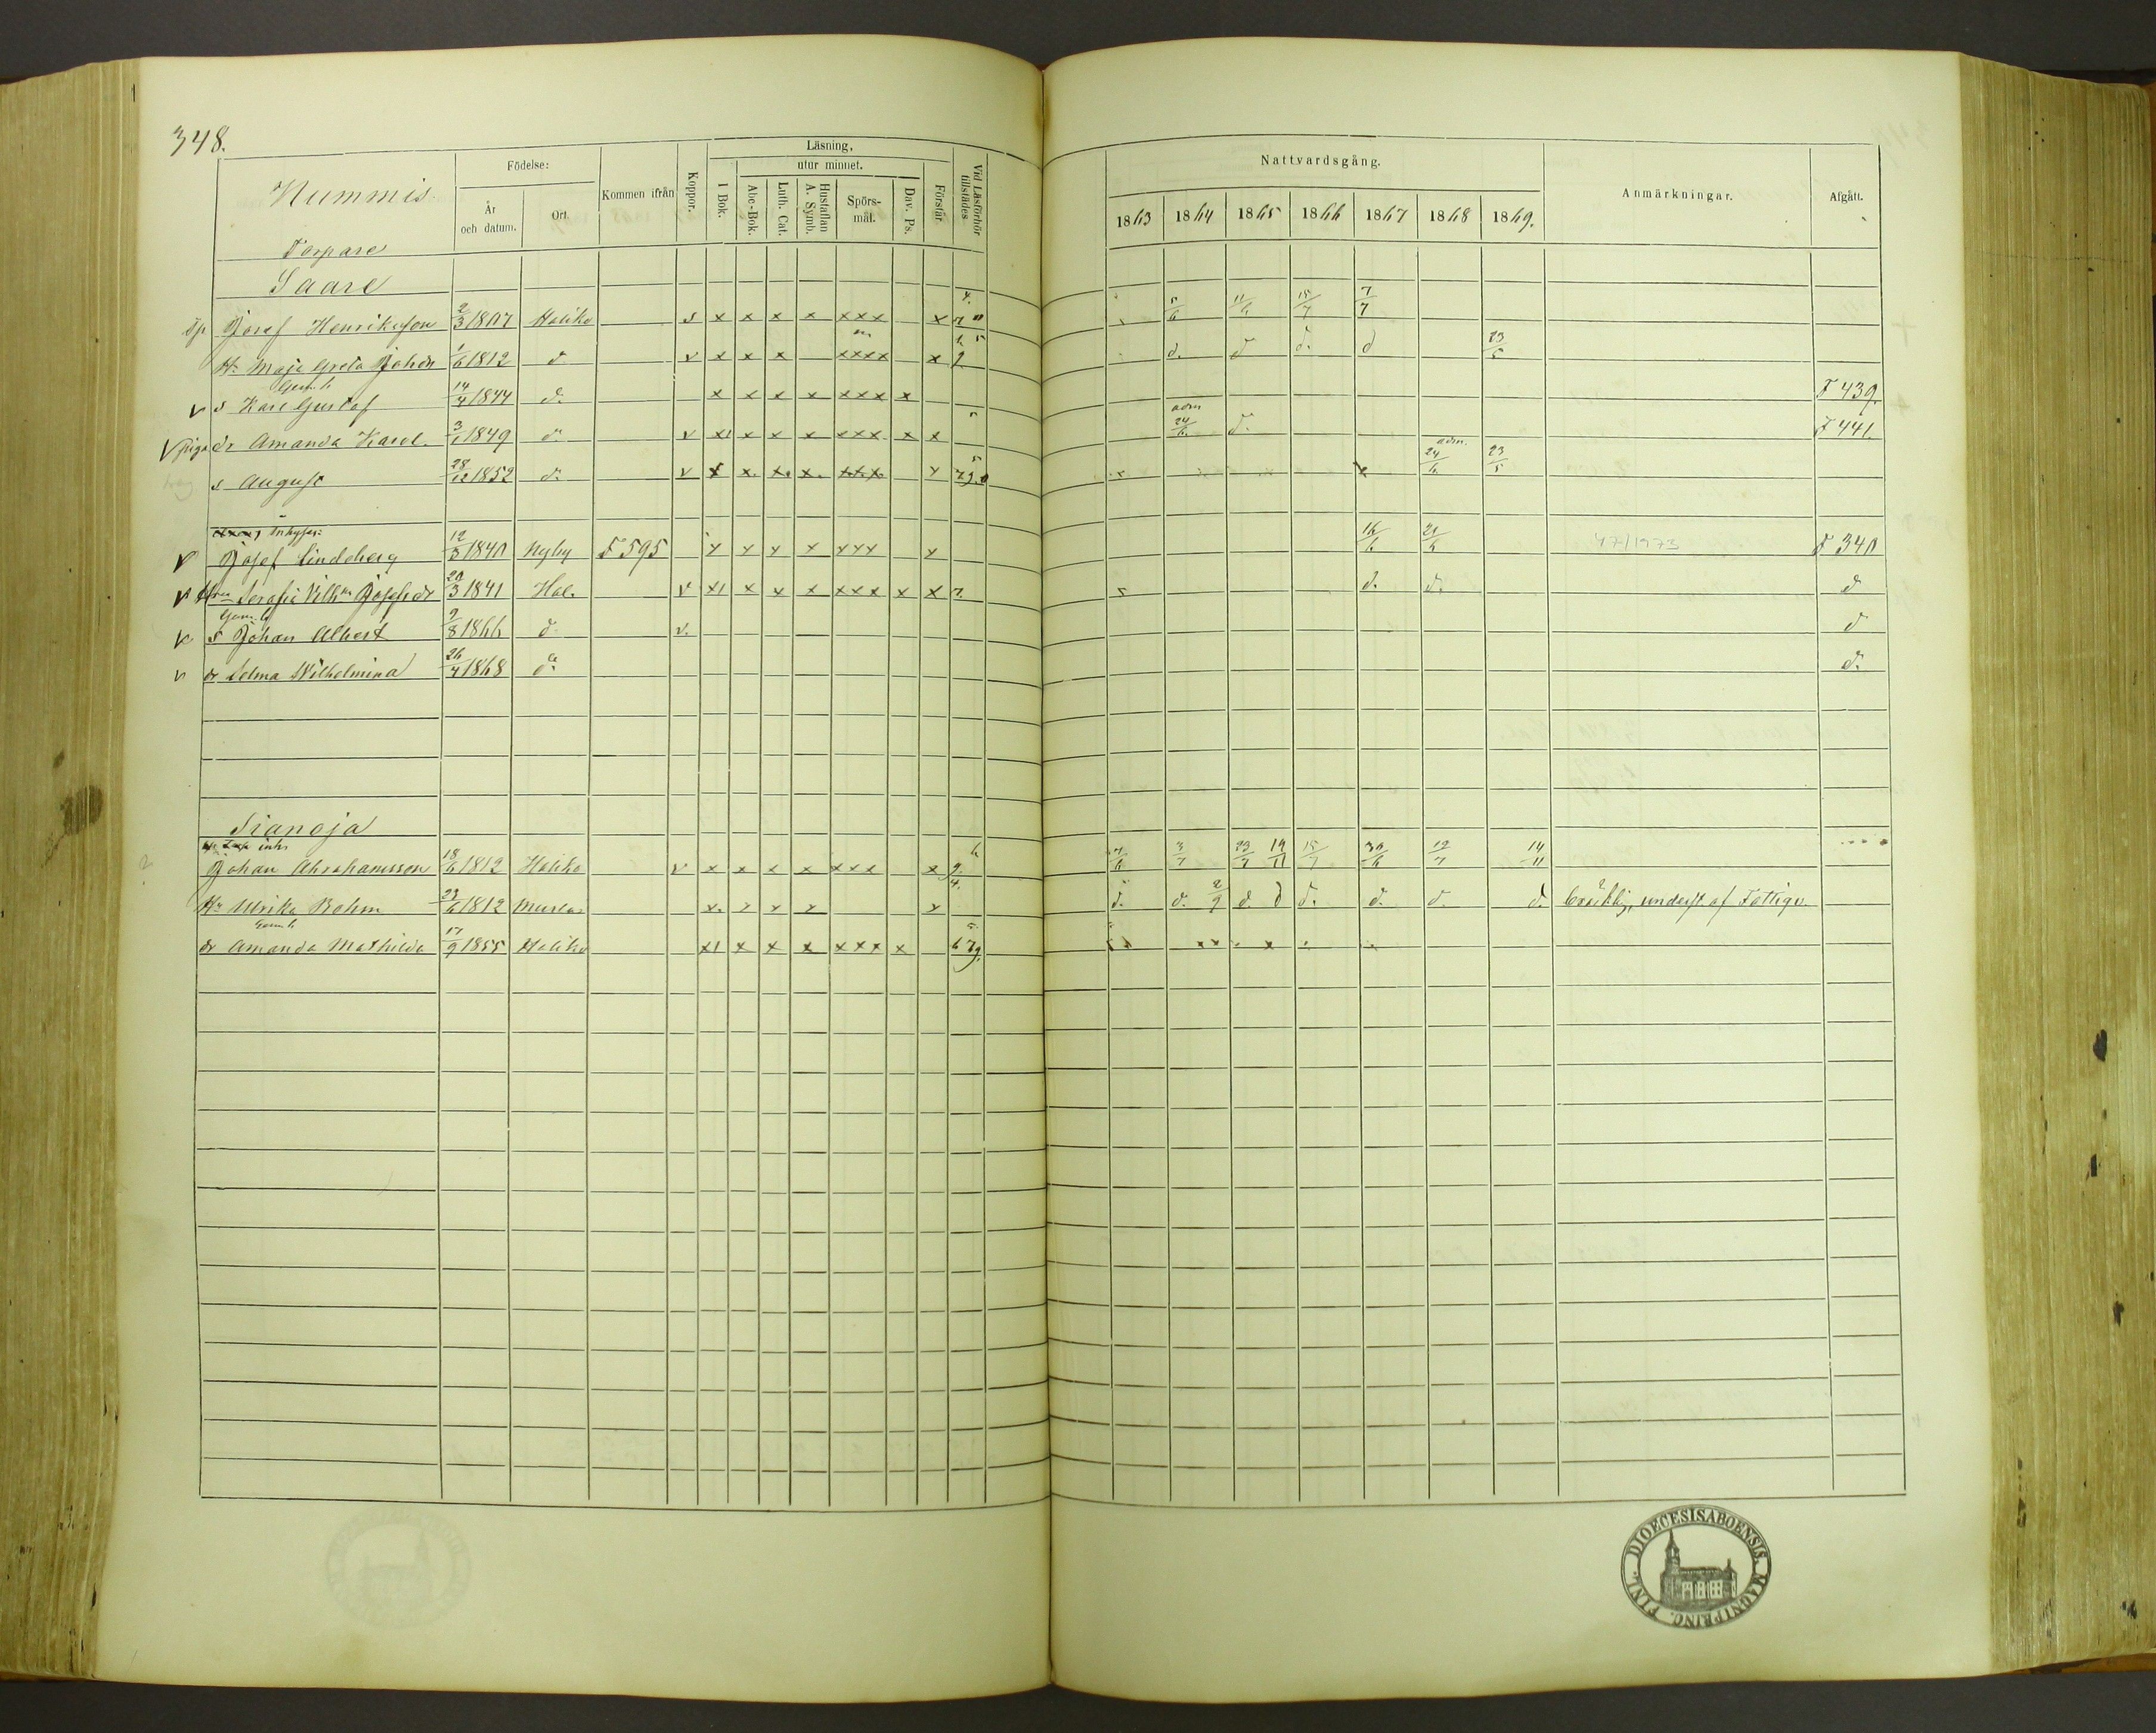 348.
Nummis
Födelse:
År och datum.
Ort.
Kommen ifrån
Koppor.
Läsning,
I Bok.
utur minnet.
Abc-Bok.
Luth. Cat.
Hustaflan A. Symb.
Spörsmål.
Dav. Ps.
Förstår.
Vid Läsförhör tillstädes.
Nattvardsgång.
1863 1864 1865 1866 1867 1868 1869.
Anmärkningar.
Afgått.
Torpare
Saare
Josef Henriksson 2/3 1807 Haliko s x x x x xxx x 5/6 11/6 15/7 7/7
Hu Maja Greta Johdr 1/6 1812 d v x x x xxxx x d. d d. d 23/5
s Karl Gustaf 14/4 1844 d. x x x x xxx x F 439.
v piga dr Amanda Karol. 1849 d v x1 x x x xxx x x adm 24/6 d. F 441.
s August 28/12 1852 d. v adm. 24/6 23/5
Inhyses:
v Josef Lindeberg 12/3 1840 Nyby F 595 x x x x xxx x 16/6 21/6 47/1973 F 340
v Serafia Vilh. Josefsdr 20/3 1841 Hal. v x1 x x x xxx x x d. d. d
v s Johan Albert 2/8 1866 d v. d
v dr Selma Wilhelmina 26/4 1868 d. d.
Sianoja
inh.
Johan Abrahamsson 18/6 1812 Haliko v x x x x xxx x 7/6 3/7 23/7 19/11 15/7 30/6 12/7 14/11
Hu Ulrika Bohm 23/6 1812 x. x x x x d. d. 2/9 d. d d. d. d. d. bräcklig, underst. af Fattigv.
dr Amanda Mathilda 17/9 1855 Haliko x1 x x x xxx x 679.
DIOECESIS ABOENSIS. MAGNI PRINC. FINL.